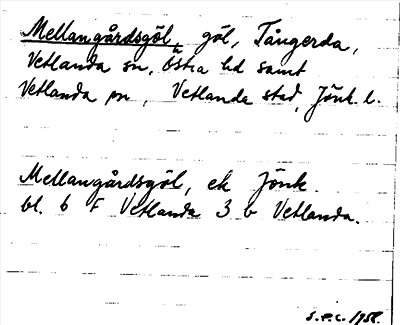 Mellangårdsgöl, göl, Tångerda,
Vetlanda sn, Östra hd samt
Vetlanda sn, Vetlanda stad, Jönk. l.
Mellangårdsgöl, ek Jönk.
bl. 6 F Vetlanda 3 b Vetlanda.
1958.